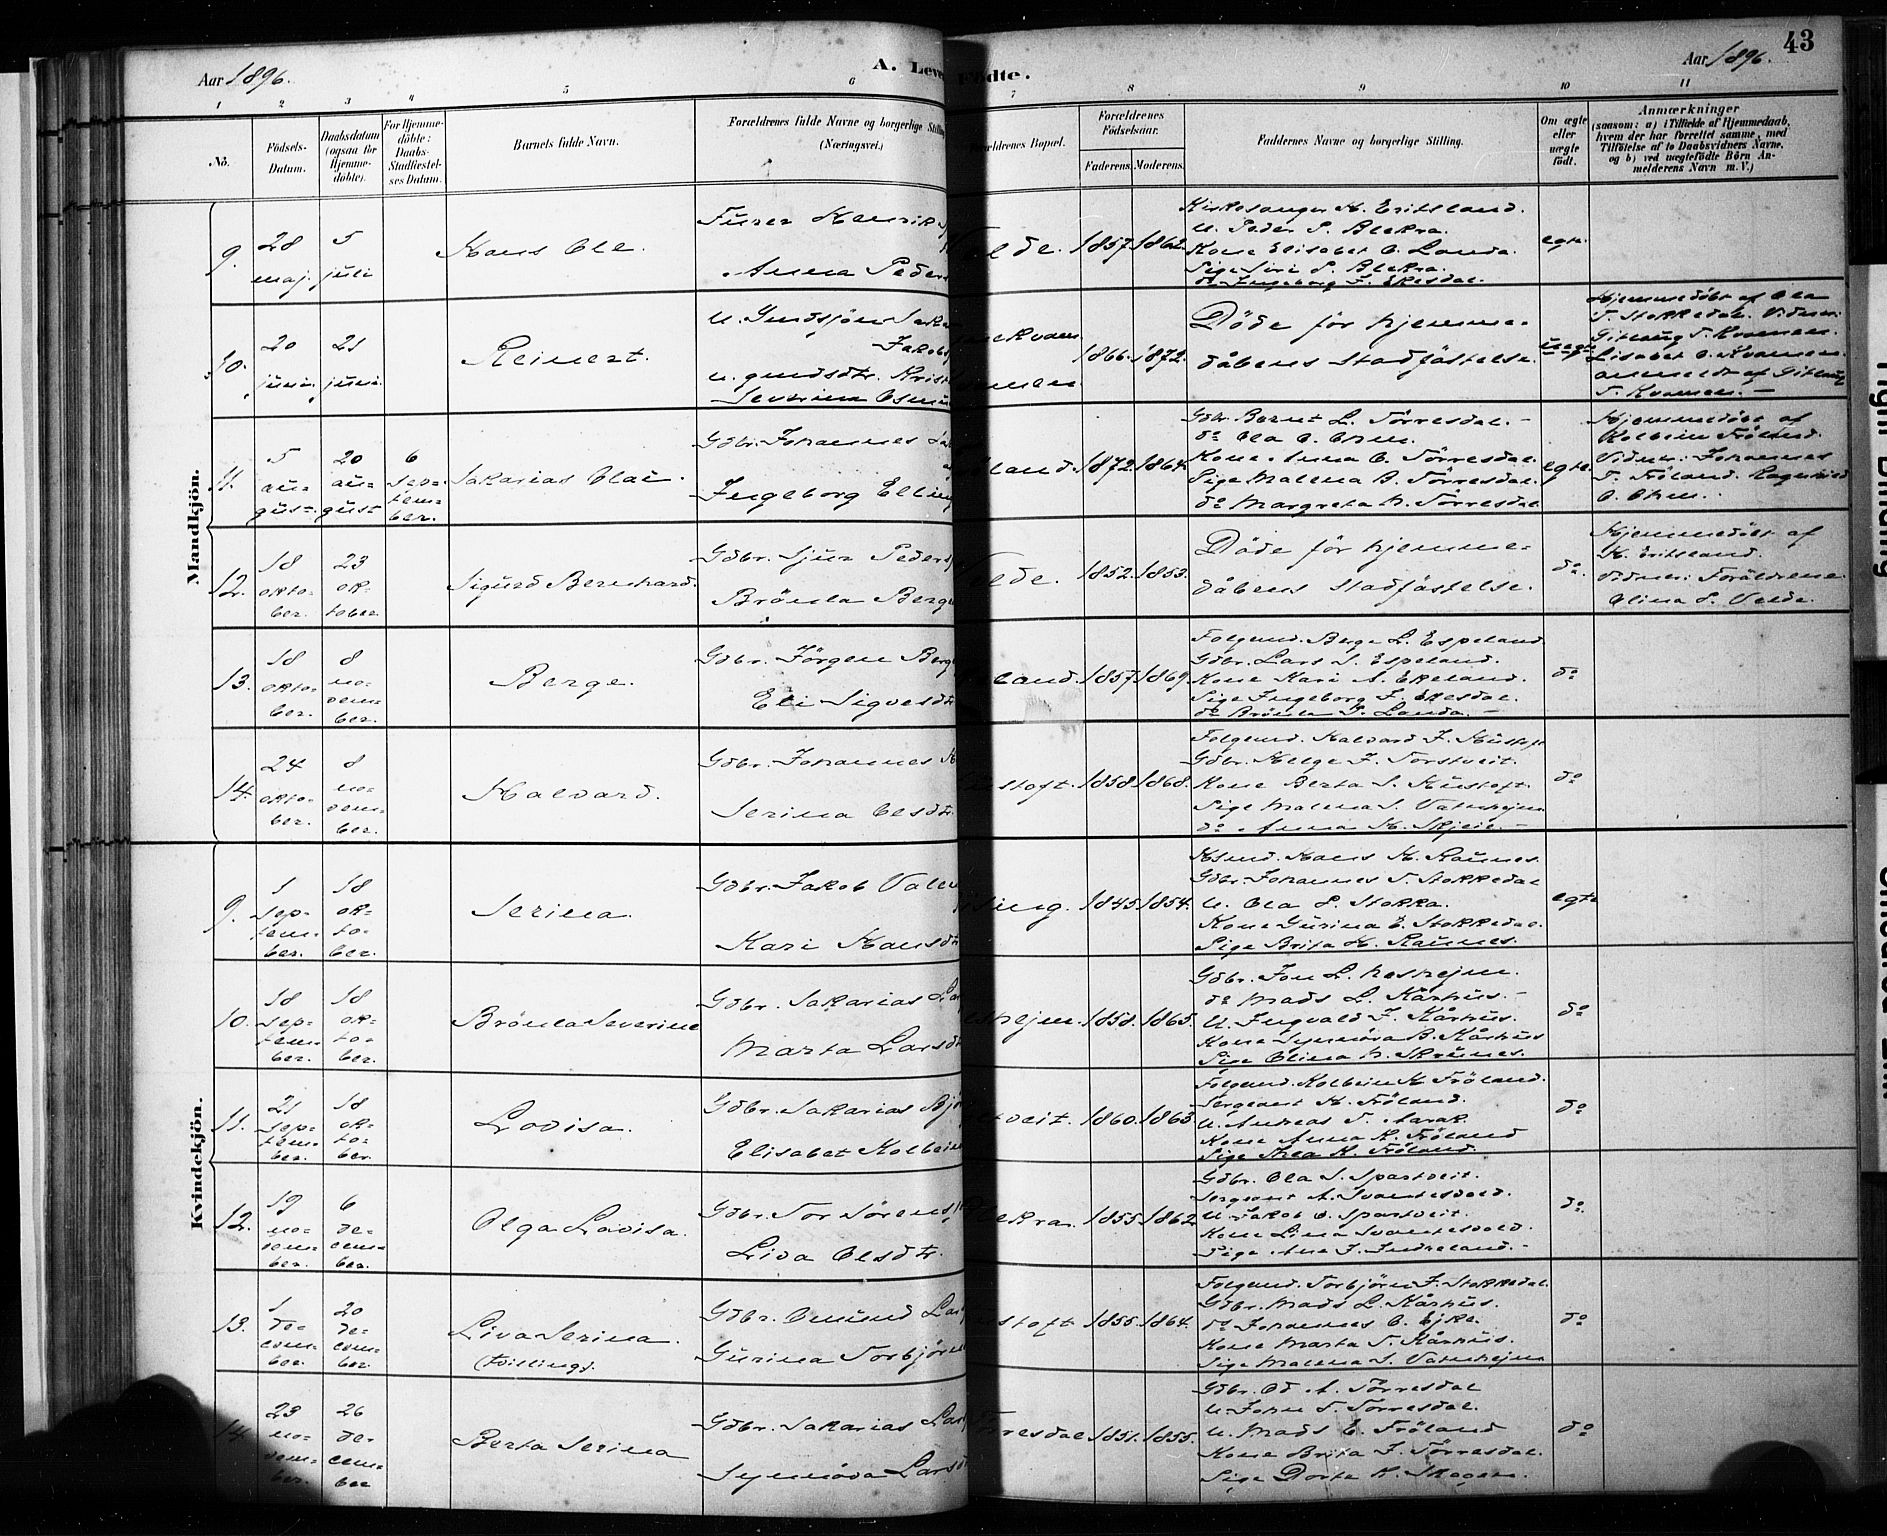 Aar 1896.
A. Leve
Födte.
Aar 1896.
43
1 2 3 4 5 6 7 8 9 10 11
No.
Födsels-Datum.
Daabsdatum (ogsaa för Hjemmedöbte).
For Hjemmedöbte: Daabs-Stadfæstelses Datum.
Barnets fulde Navn.
Forældrenes fulde Navne og borgerlige Stilling
(Næringsvei.)
Forældrenes Bopæl.
Forældrenes Födselsaar.
Faderens.
Moderens.
Faddernes Navne og borgerlige Stilling.
Om ægte eller uægte födt.
Anmærkninger
(saasom: a) i Tilfælde af Hjemmedaab, hvem der har forrettet samme, med Tilföielse af to Daabsvidners Navne, og b) ved uægtefödte Börn Anmelderens Navn m. V.)
Mandkjön.
9.
28 maj.
5 juli
Hans Ole.
Furer Henrik
Anna Peders
elde.
1857.
1862.
Kirkesanger H. Eritsland.
U. Peder S. Blekra.
Kone Elisabet O. Landa.
Pige Siri S. Blekra.
do Ingeborg J. Ekesdal.
egte.
10.
20 juni.
21 juni.
Reinert.
Jakobs
Severina
kvam
1866.
1872.
Döde för hjemme-
dåbens Stadfästelse.
uegte
Hjemmedöbt af Ola
T. Stokkedal. Vidner:
Gitlaug T. Kvamen.
Lisabet O. Kvamen.
anmeldt af Gitlaug
T. Kvamen.
11.
5 august.
20 august
6 september.
Sakarias Olai.
Gdbr. Johannes
Ingeborg Elling
öland.
1872.
1864.
Gdbr. Bernt L. Törresdal.
do Ola O. Ohm.
Kone Anna O. Törresdal.
Pige Malena B. Törresdal.
do Margreta N. Törresdal
egte.
Hjemmedöbt af
Kolbein Fröland.
Vidner: Johannes
T. Fröland. Ragnhild
O. Ohm.
12.
18 oktober.
23 oktober.
Sigurd Bernhard.
Gdbr. Sjur Peders
Brönla Berge
elde.
1852.
1853.
Döde för hjemme-
dåbens stadfästelse.
do.
Hjemmedöbt af
H. Eritsland.
Vidner: Foräldrene.
Olina S. Velde.
13.
18 oktober.
8 november.
Berge.
Gdbr. Jörgen Berg
Eli Sigvesdtr
eland.
1857.
1869.
Folgemd. Berge L. Espeland
Gdbr. Lars S. Espeland.
Kone Kari A. Ekeland.
Pige Ingeborg J. Ekesdal.
do Brönla S. Landa.
do
14.
24 oktober.
8 november.
Halvard.
Gdbr. Johannes H
Serina Olsdtr.
ustoft.
1858.
1868.
Folgemd. Halvard J. Hustoft
Gdbr. Helge J. Torstveit.
Kone Berta S. Hustoft.
Pige Malena S. Vatnhejm
do Anna H. Skjeie.
do
Kvindekjön.
9.
1 september.
18 oktober.
Serina.
Gdbr. Jakob Valen
Kari Hansdtr
1845.
1854.
Ksmd. Hans H. Raunes.
Gdbr. Johannes T. Stokkedal
U. Ola S. Stokka.
Kone Gurina E. Stokkedal.
Pige Brita H. Raunes.
egte
10.
18 september.
18 oktober.
Brönla Severine
Gdbr. Sakarias La
Marta Larsdt
eshejm.
1858.
1865.
Gdbr. Jon L. Neshejm.
do Mads L. Kårhus.
U. Ingvald J. Kårhus.
Kone Synnöva B. Kårhus
Pige Olina N. Skrunes.
do
11.
21 september.
18 oktober.
Lovisa.
Gdbr. Sakarias Bjö
Elisabet Kolbein
tveit.
1860.
1863.
Folgemd. Kolbein K. Fröland.
Sergeant K. Fröland.
U. Andreas T. Aarak.
Kone Anna K. Fröland
Pige Alea K. Fröland.
do
12.
19 november.
6 december.
Olga Lovisa.
Gdbr. Tor Sörens
Liva Olsdtr.
lekra.
1855.
1862.
Gdbr. Ola S. Spartveit.
Sergeant A. Svantesvold.
U. Jakob O. Spartveit.
Kone Lina Svantesvold.
Pige Ane J. Indreland.
do.
13.
1 december.
20 december.
Liva Serina.
(tvilling).
Gdbr. Omund Lar
Gurina Torbjörn
ustoft
1855.
1864.
Folgemd. Torbjörn J. Stokkedal.
Gdbr. Mads L. Kårhus.
do Johannes O. Ejke.
Kone Marta S. Kårhus.
Pige Malena S. Vatnhejm
do
14.
23 november.
26 december
Berta Serina
Gdbr. Sakarias Lar
Synnöva Larsd
Törresdal
1851.
1855.
Gdbr. Od A. Törresdal
U. John T. Torresdal.
U. Mads E. Fröland
Kone Brita J. Törresdal.
Pige Dorta K. Skogen.
do